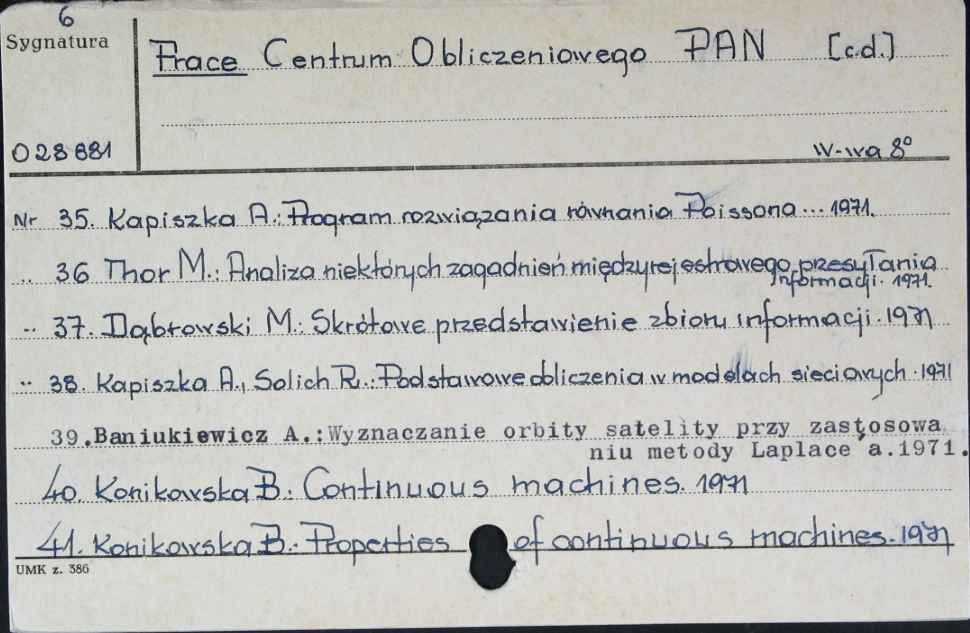 6
Sygnatura
Prace Centrum Obliczeniowego PAN [c.d.]
028881
W-wa 8°
Nr 35. Kapiszka A.: Program rozwiązania równania Poissona... 1971.
.. 36 Thor M.: Analiza niektórych zagadnień międzyrejestrowego przesyłania
informacji. 1971.
.. 37. Dąbrowski M.: Skrótowe przedstawienie zbioru informacji. 1971
.. 38. Kapiszka A., Solich R.: Podstawowe obliczenia w modelach sieciowych. 1971
39.Baniukiewicz A.:Wyznaczanie orbity satelity przy zastosowa
niu metody Laplace a.1971.
40. Konikowska B.: Continuous machines. 1971
41. Konikowska B.: Properties of continuous machines. 1971
UMK z. 386